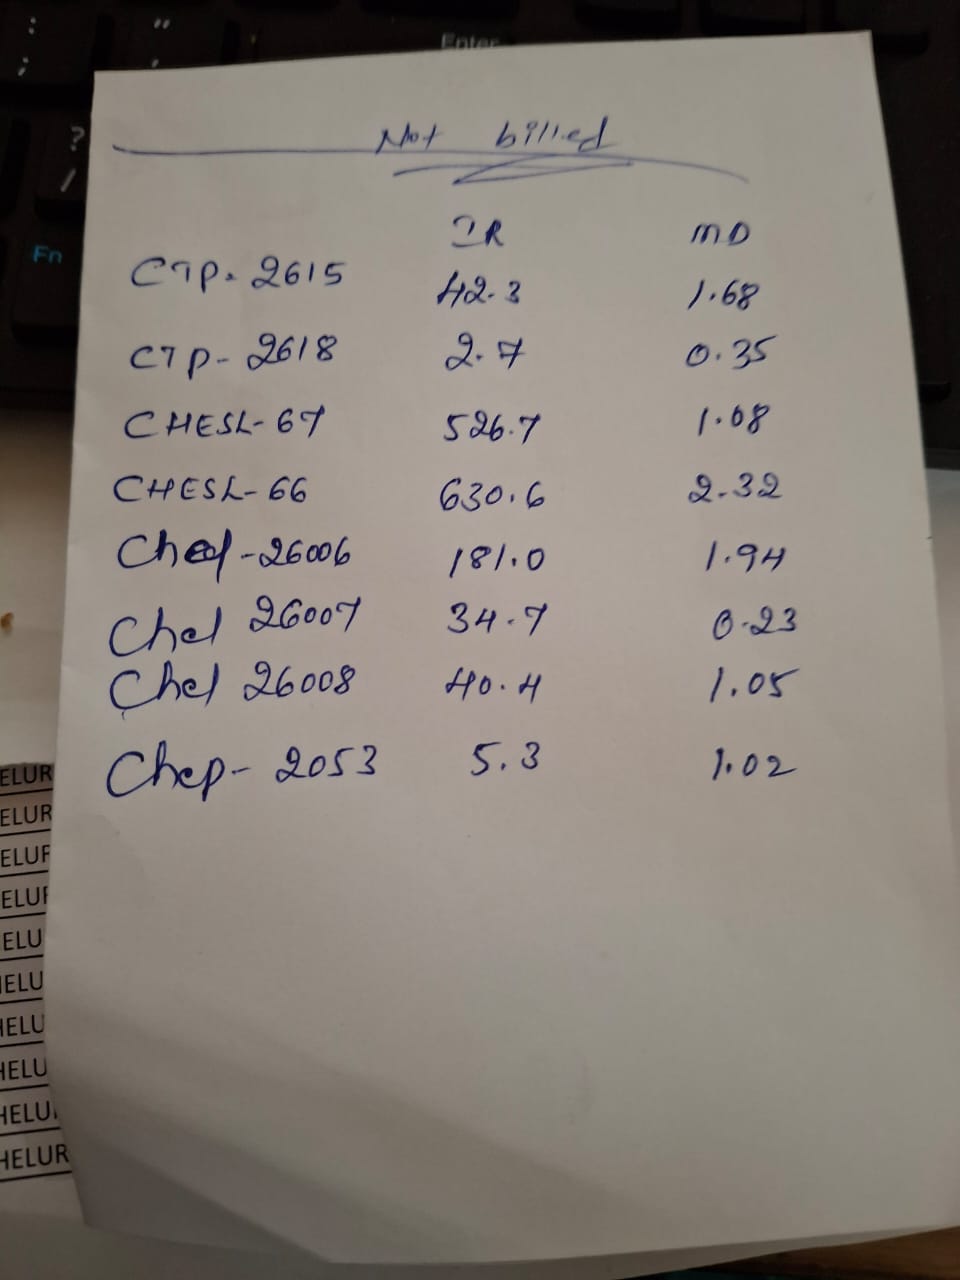 Enter
Fn
Not billed
IR MD
CTP- 2615 42.3 1.68
CTP- 2618 2.7 0.35
CHESL- 67 526.7 1.08
CHESL- 66 630.6 2.32
-26006 181.0 1.94
Chel 26007 34.7 0.23
Chel 26008 40.4 1.05
Chep- 2053 5.3 1.02
ELUR
ELUR
ELUR
ELUR
ELU
ELU
HELU
HELU
HELU
HELUR